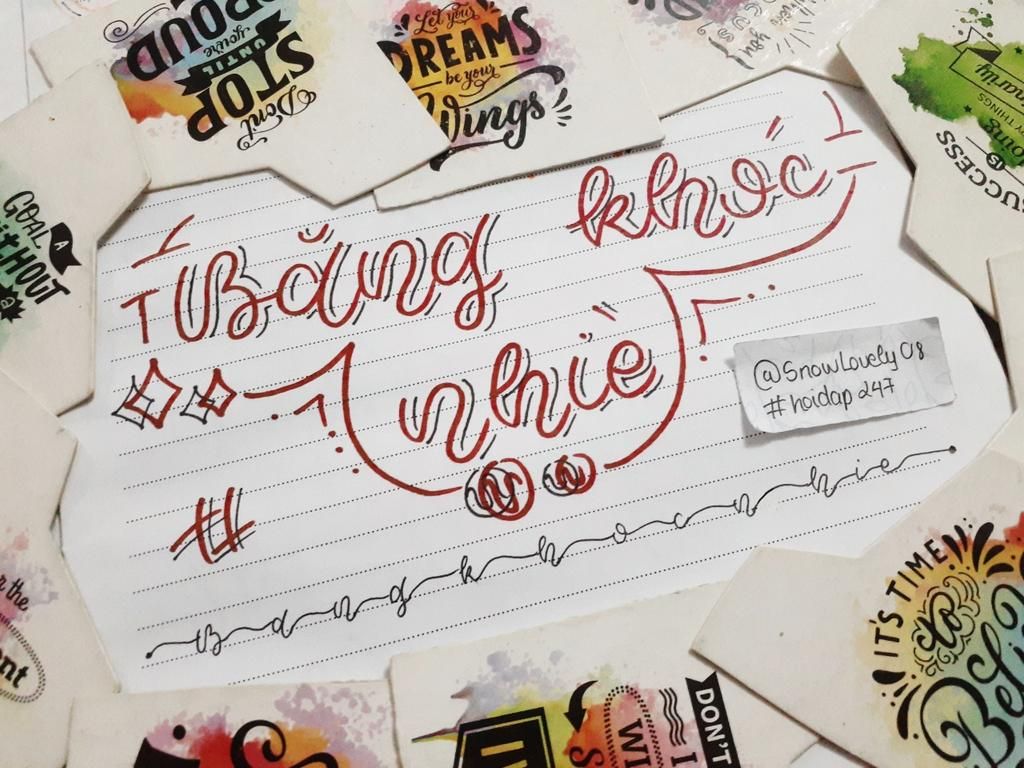 Don't
STOP
UNTIL
you're
PROUD
Let your
DREAMS
be your
Wings
SUCCESS
GOAL
A
WITHOUT
Băng khóc
nhiè
@SnowLovely08
#hoidap247
#
Bangkhocnhie
the
IT'S TIME
DON'T